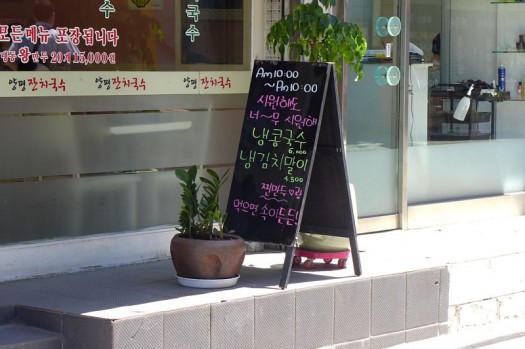 수
국수
모든메뉴 포장됩니다
왕만두 20개 15,000원
양평잔치국수 양평잔치국수 양평잔치국수
Am 10:00
~Pm 10:00
시원해도
너~무 시원해
냉콩국수
6.000
냉김치말이
4.500
찐만두
먹으면 속이든든!